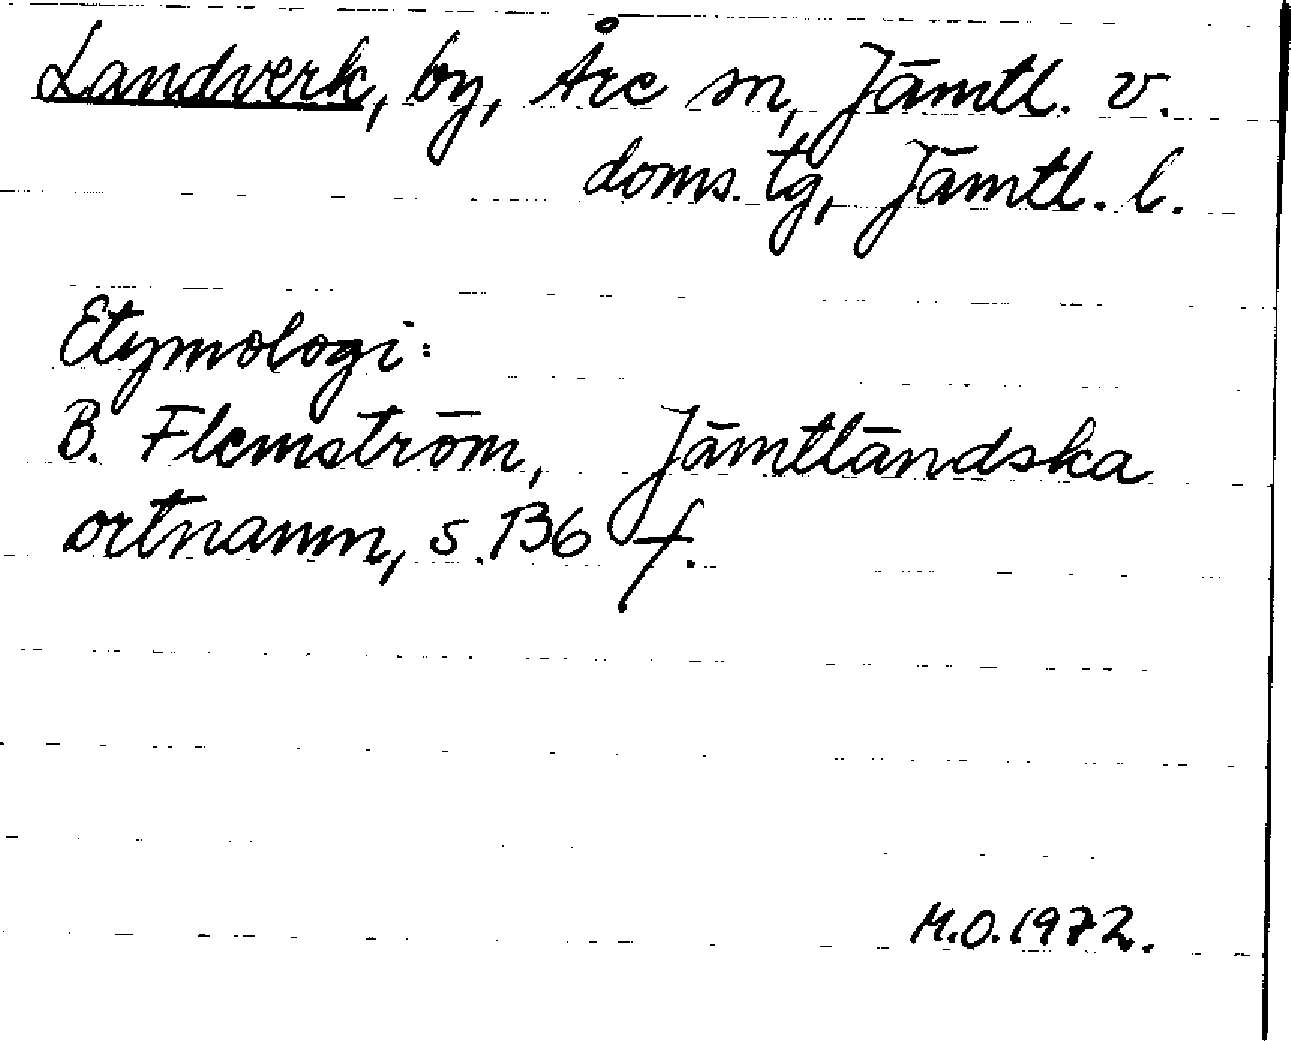 Landverk, by, Åre sn, Jämtl. v.
doms. tg, Jämtl. l.
Etymologi:
B. Flemström, Jämtländska
ortnamn, s. 136 f.
M.O. 1972.